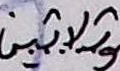 وثلاثين